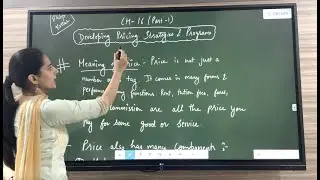 CH-16 (Part-1)
Developing Pricing Strategies & Programs
Meaning Price - Price is not just a
number on tag. It comes in many forms &
performs many functions. Rent, tution fees, fares,
commission are all the price you
pay for some good or service.
Price also has many components :-